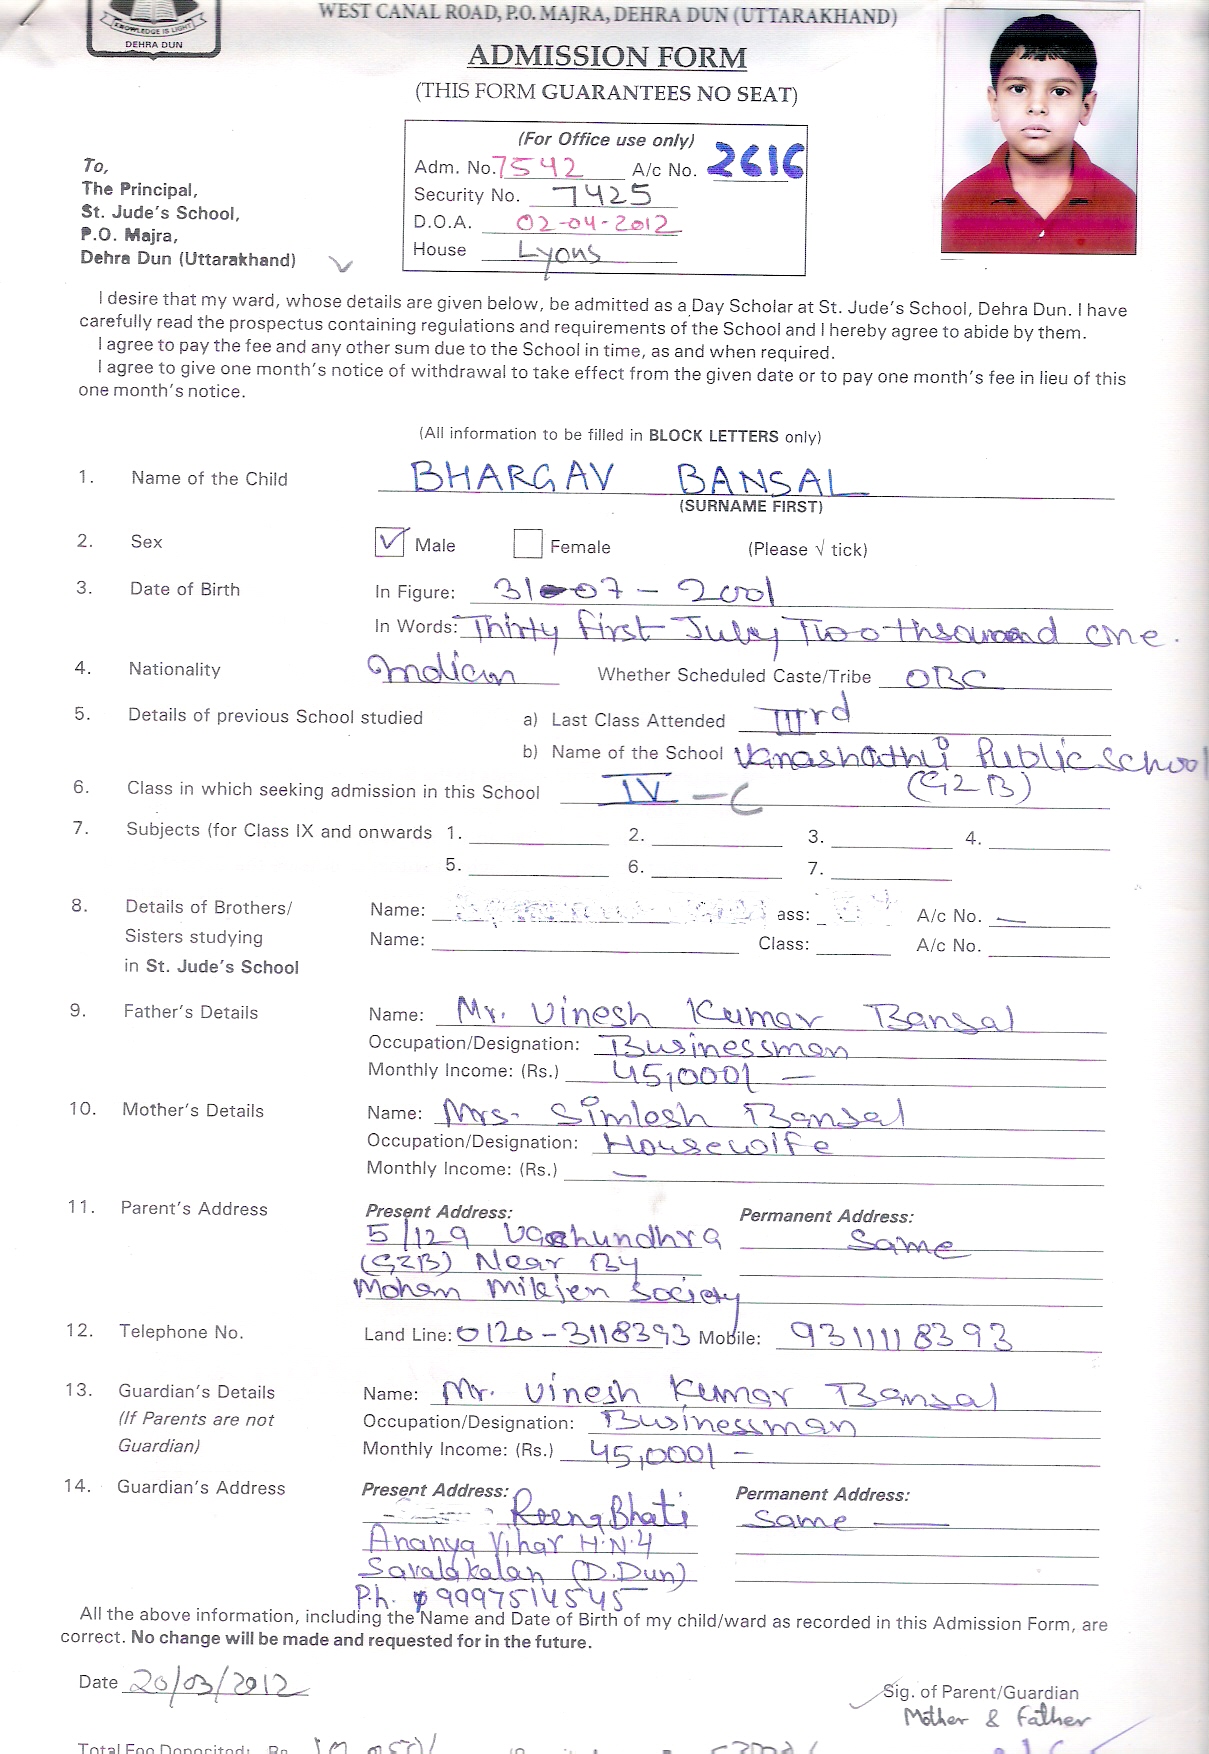 KNOWLEDGE IS LIGHT
DEHRA DUN
WEST CANAL ROAD, P.O. MAJRA, DEHRA DUN (UTTARAKHAND)
ADMISSION FORM
(THIS FORM GUARANTEES NO SEAT)
(For Office use only)
Adm. No. 7542 A/c No. 2616
Security No. 7425
D.O.A. 02-04-2012
House Lyons
To,
The Principal,
St. Jude's School,
P.O. Majra,
Dehra Dun (Uttarakhand)
I desire that my ward, whose details are given below, be admitted as a Day Scholar at St. Jude's School, Dehra Dun. I have
carefully read the prospectus containing regulations and requirements of the School and I hereby agree to abide by them.
I agree to pay the fee and any other sum due to the School in time, as and when required.
I agree to give one month's notice of withdrawal to take effect from the given date or to pay one month's fee in lieu of this
one month's notice.
(All information to be filled in BLOCK LETTERS only)
1. Name of the Child BHARGAV BANSAL
(SURNAME FIRST)
2. Sex Male Female (Please √ tick)
3. Date of Birth In Figure: 31-07-2001
In Words: Thirty first July Two thsound one.
4. Nationality Indian Whether Scheduled Caste/Tribe OBC
5. Details of previous School studied a) Last Class Attended IIIrd
b) Name of the School Vanashathli Public School
(GZB)
6. Class in which seeking admission in this School IV - C
7. Subjects (for Class IX and onwards 1. 2. 3. 4.
5. 6. 7.
8. Details of Brothers/ Name: ass: A/c No. —
Sisters studying Name: Class: A/c No.
in St. Jude's School
9. Father's Details Name: Mr. Vinesh Kumar Bansal
Occupation/Designation: Businessman
Monthly Income: (Rs.) 45,000/-
10. Mother's Details Name: Mrs. Simlesh Bansal
Occupation/Designation: Housewife
Monthly Income: (Rs.) —
11. Parent's Address Present Address: Permanent Address:
5/129 Vashundhra Same
(GZB) Near By
Mohan Society
12. Telephone No. Land Line: 0120-3118393 Mobile: 9311118393
13. Guardian's Details Name: Mr. Vinesh Kumar Bansal
(If Parents are not Occupation/Designation: Businessman
Guardian) Monthly Income: (Rs.) 45,000/-
14. Guardian's Address Present Address: Permanent Address:
Reena Bhati Same —
Ananya Vihar H.N.4
Savalakalan (D.Dun)
Ph. 9997514545
All the above information, including the Name and Date of Birth of my child/ward as recorded in this Admission Form, are
correct. No change will be made and requested for in the future.
Date 20/03/2012
Sig. of Parent/Guardian
Mother & Father
Total Fee Deposited: Rs.